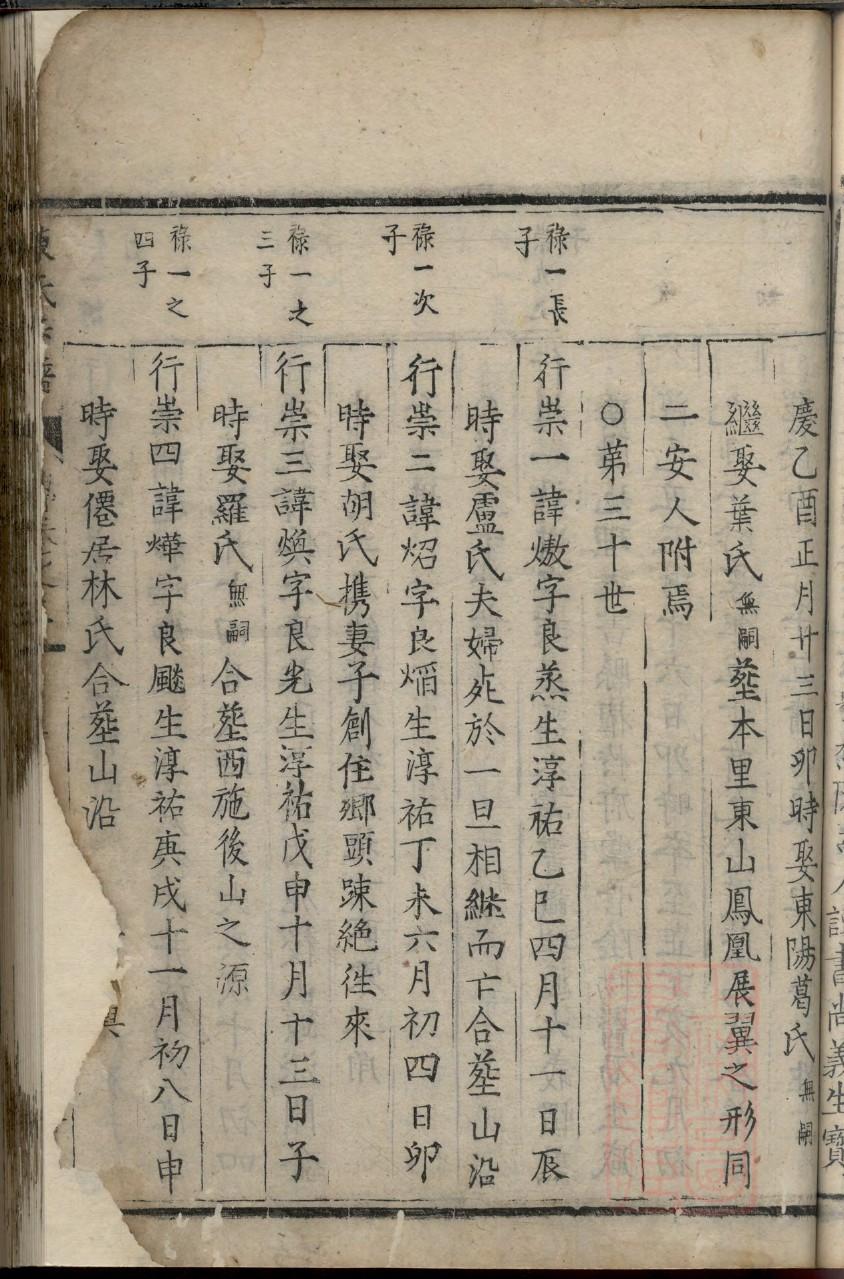 慶乙酉正月廿三日卯時娶東陽葛氏無嗣
繼娶葉氏無嗣塟本里東山鳳凰展翼之形同
二安人附焉
○第三十世
祿一長子
行崇一諱熾字良蒸生淳祐乙巳四月十一日辰
時娶盧氏夫婦㱔於一旦相繼而亡合塟山沿
祿一次子
行崇二諱炤字良熖生淳祐丁未六月初四日卯
時娶胡氏携妻子創住鄉頭踈絶徃來
祿一之三子
行崇三諱煥字良光生淳祐戊申十月十三日子
時娶羅氏無嗣合塟西施後山之源
祿一之四子
行崇四諱燁字良颷生淳祐庚戌十一月初八日申
時娶僊居林氏合塟山沿